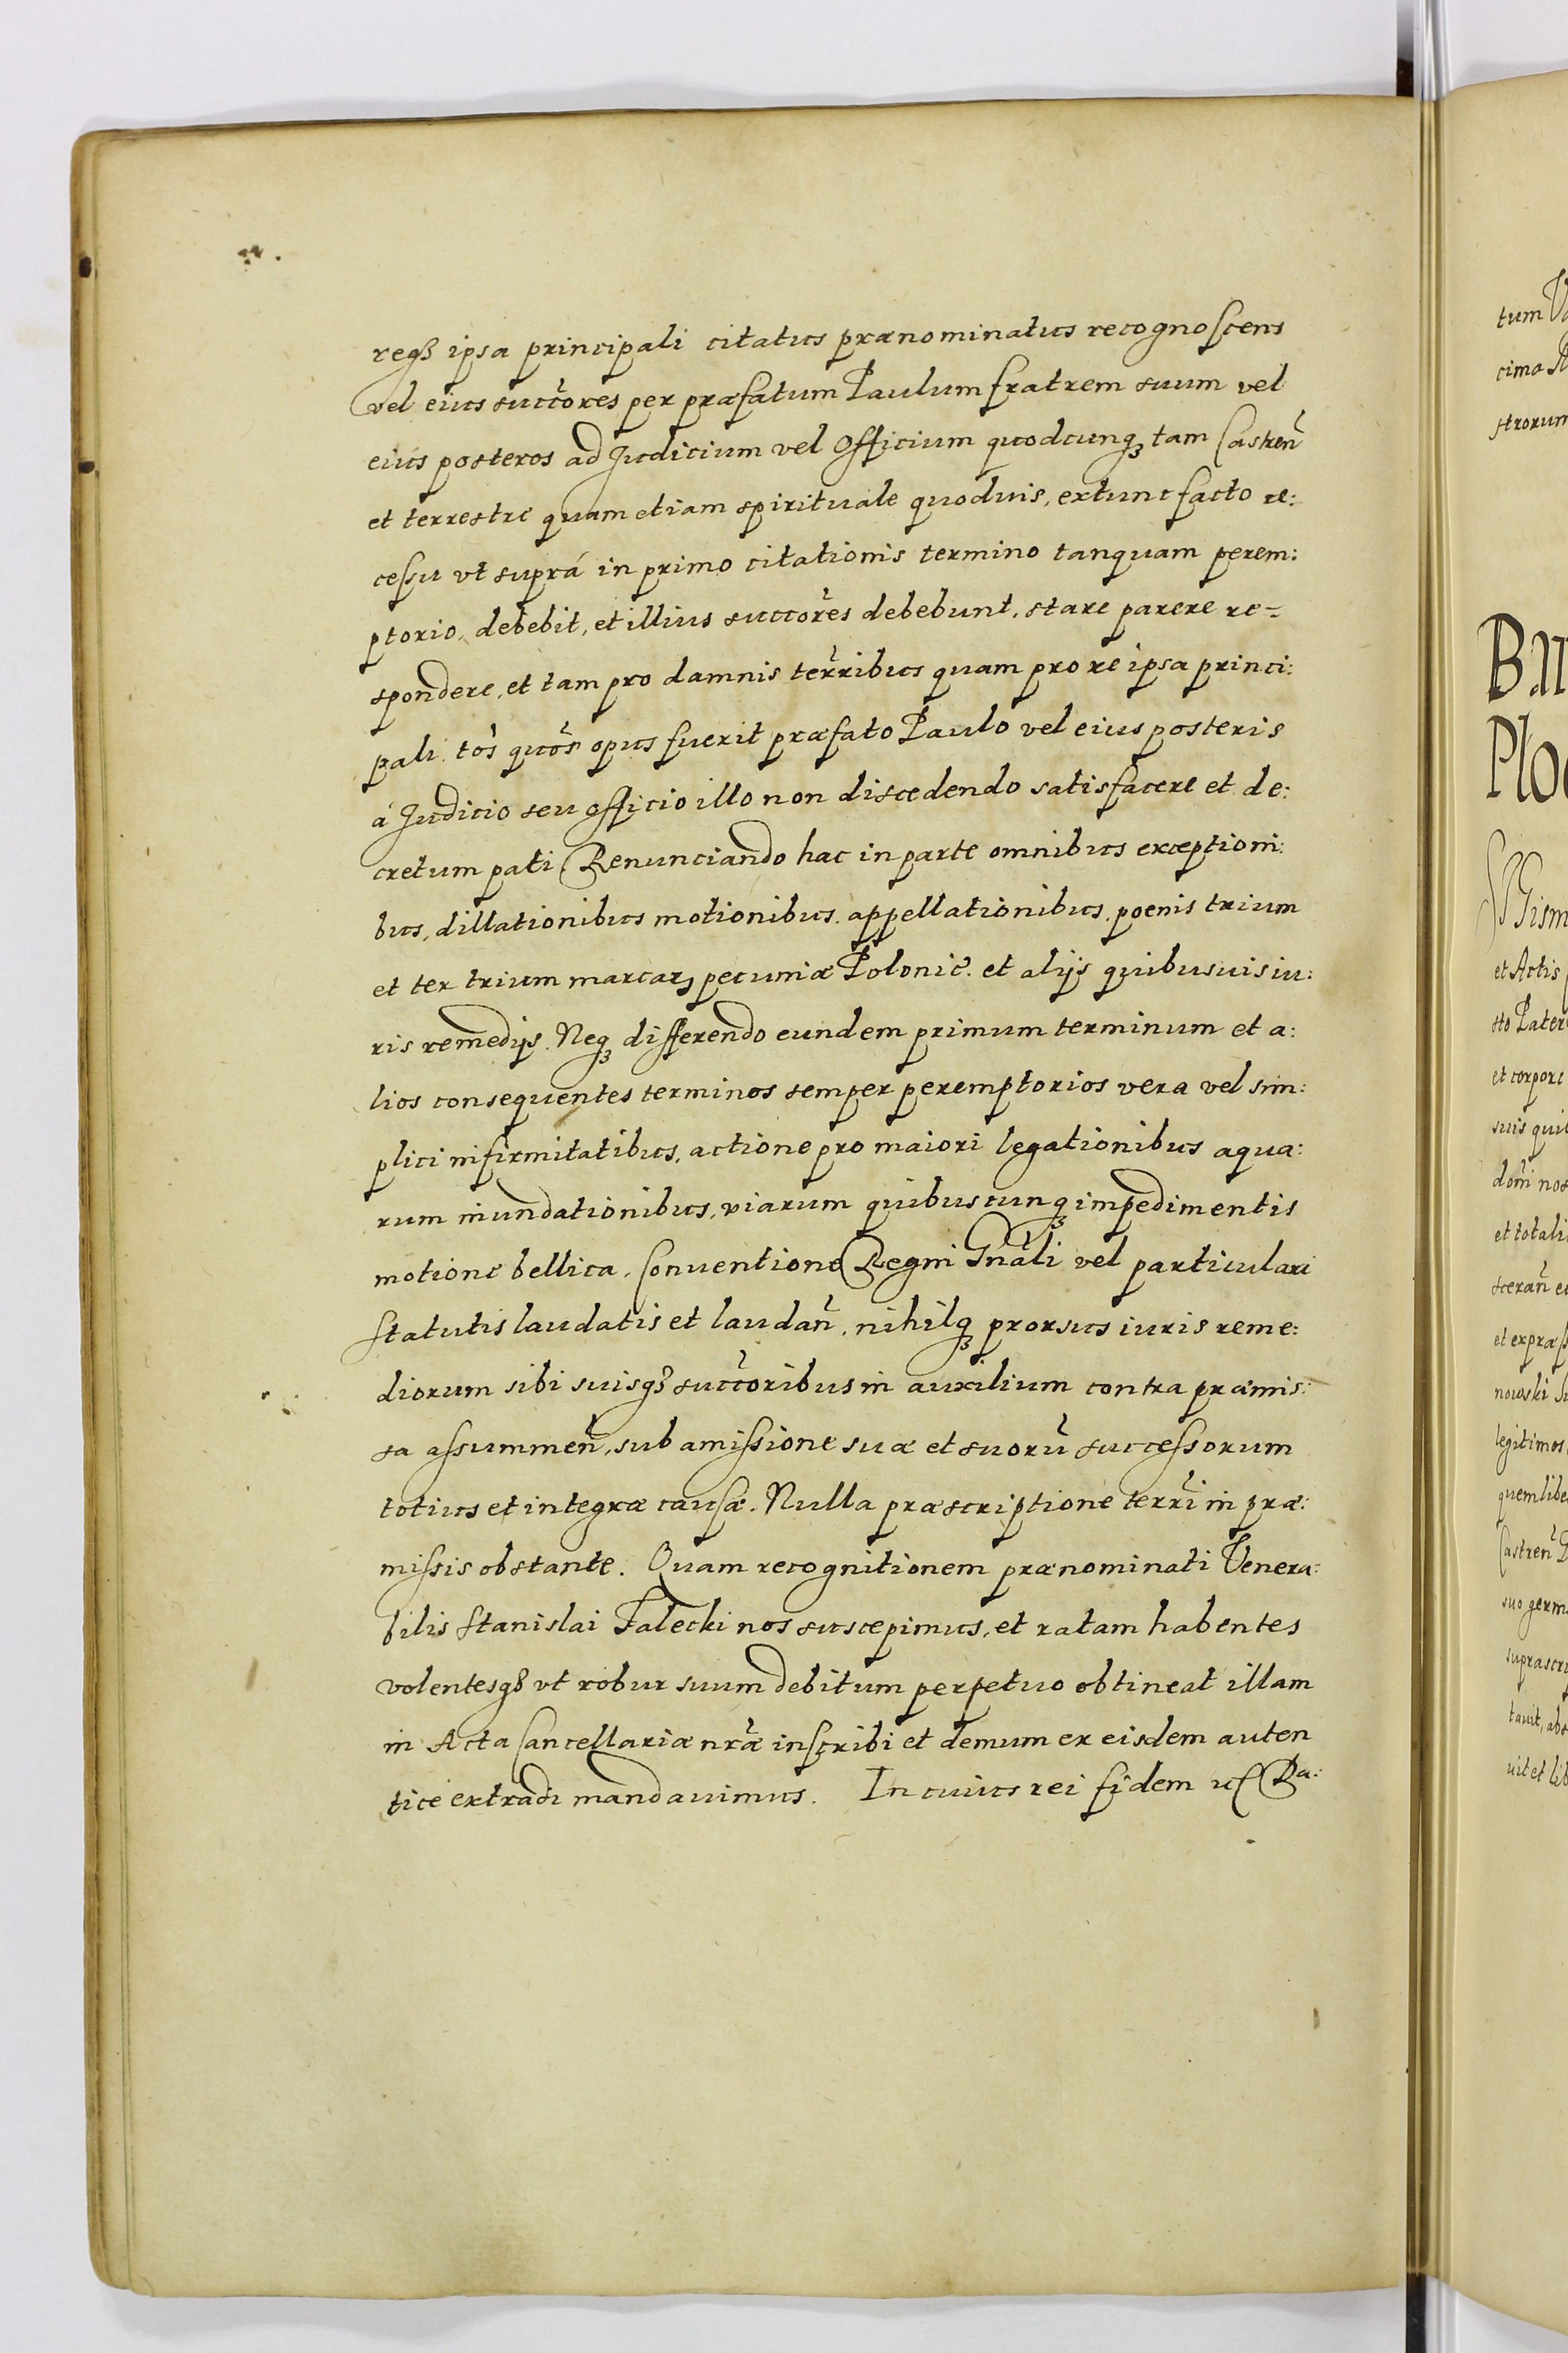 reqꝫ ipsa principali citatus prænominatus recognoscens
vel eius succ̃ores per præfatum Paulum fratrem suum vel
eius posteros ad Judicium vel Officium quodcunqꝫ tam Castren̄
et terrestre quam etiam spirituale quoduis, extunc facto re:
cessu vt suprá in primo citationis termino tanquam perem:
ptorio, debebit, et illius succores̃ debebunt, stare parere re=
spondere, et tam pro damnis terr̃ibus quam pro re ipsa princi:
pali. tos̃ quos̃ opus fuerit præfato Paulo vel eius posteris
á Judicio seu officio illo non discedendo satisfacere et de:
cretum pati Renunciando hac in parte omnibus exceptioni:
bus, dillationibus motionibus, appellationibus, poenis trium
et ter trium marcarꝫ pecuniæ Polonic̃. et alijs quibusuis iu:
ris remedijs. Neqꝫ differendo eundem primum terminum et a:
lios consequentes terminos semper peremptorios vera vel sim:
plici infirmitatibus, actione pro maiori legationibus aqua:
rum inundationibus, viarum quibuscunqꝫ impedimentis
motione bellica, Conuentione Regni Gnãli vel particulari
Statutis laudatis et laudan̄, nihilqꝫ prorsus iuris reme:
diorum sibi suisqꝫ succ̃oribus in auxilium contra præmis:
sa assummen̄, sub amissione suæ et suorū successorum
totius et integræ causæ. Nulla præscriptione terrĩ in præ:
missis obstante. Quam recognitionem prænominati Venera:
bilis Stanislai Falecki nos suscepimus, et ratam habentes
volentesqꝫ vt robur suum debitum perpetuo obtineat illam
in Acta Cancellariæ nr̃æ inscribi et demum ex eisdem auten
tice extradi mandauimus. In cuius rei fidem
tum
cima
strorum
et Actis
sto Pater
et corpore
suis
et totali
nowski
legitimos
quemlibe
Castren̄
suo germ
suprascri
tauit,
uit et lib